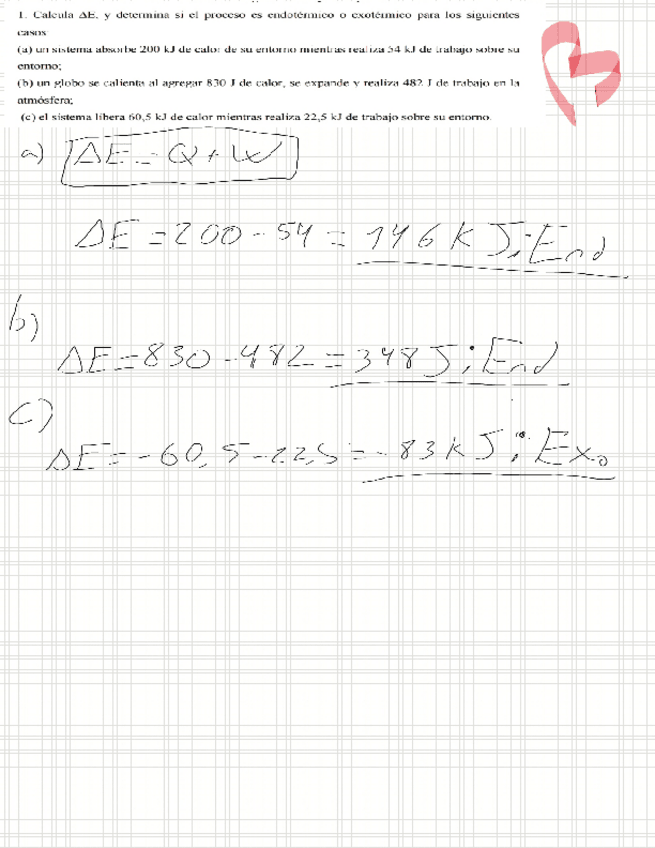 1. Calcula ΔE, y determina si el proceso es endotérmico o exotérmico para los siguientes
casos
(a) un sistema absorbe 200 kJ de calor de su entorno mientras realiza 54 kJ de trabajo sobre su
entorno;
(b) un globo se calienta al agregar 830 J de calor, se expande y realiza 482 J de trabajo en la
atmósfera;
(c) el sistema libera 60,5 kJ de calor mientras realiza 22,5 kJ de trabajo sobre su entorno.
a) ΔE = Q + W
ΔE = 200 - 54 = 146 kJ; End
b)
ΔE = 830 - 482 = 348 J; End
c)
ΔE = -60,5 - 22,5 = -83 kJ; Exo